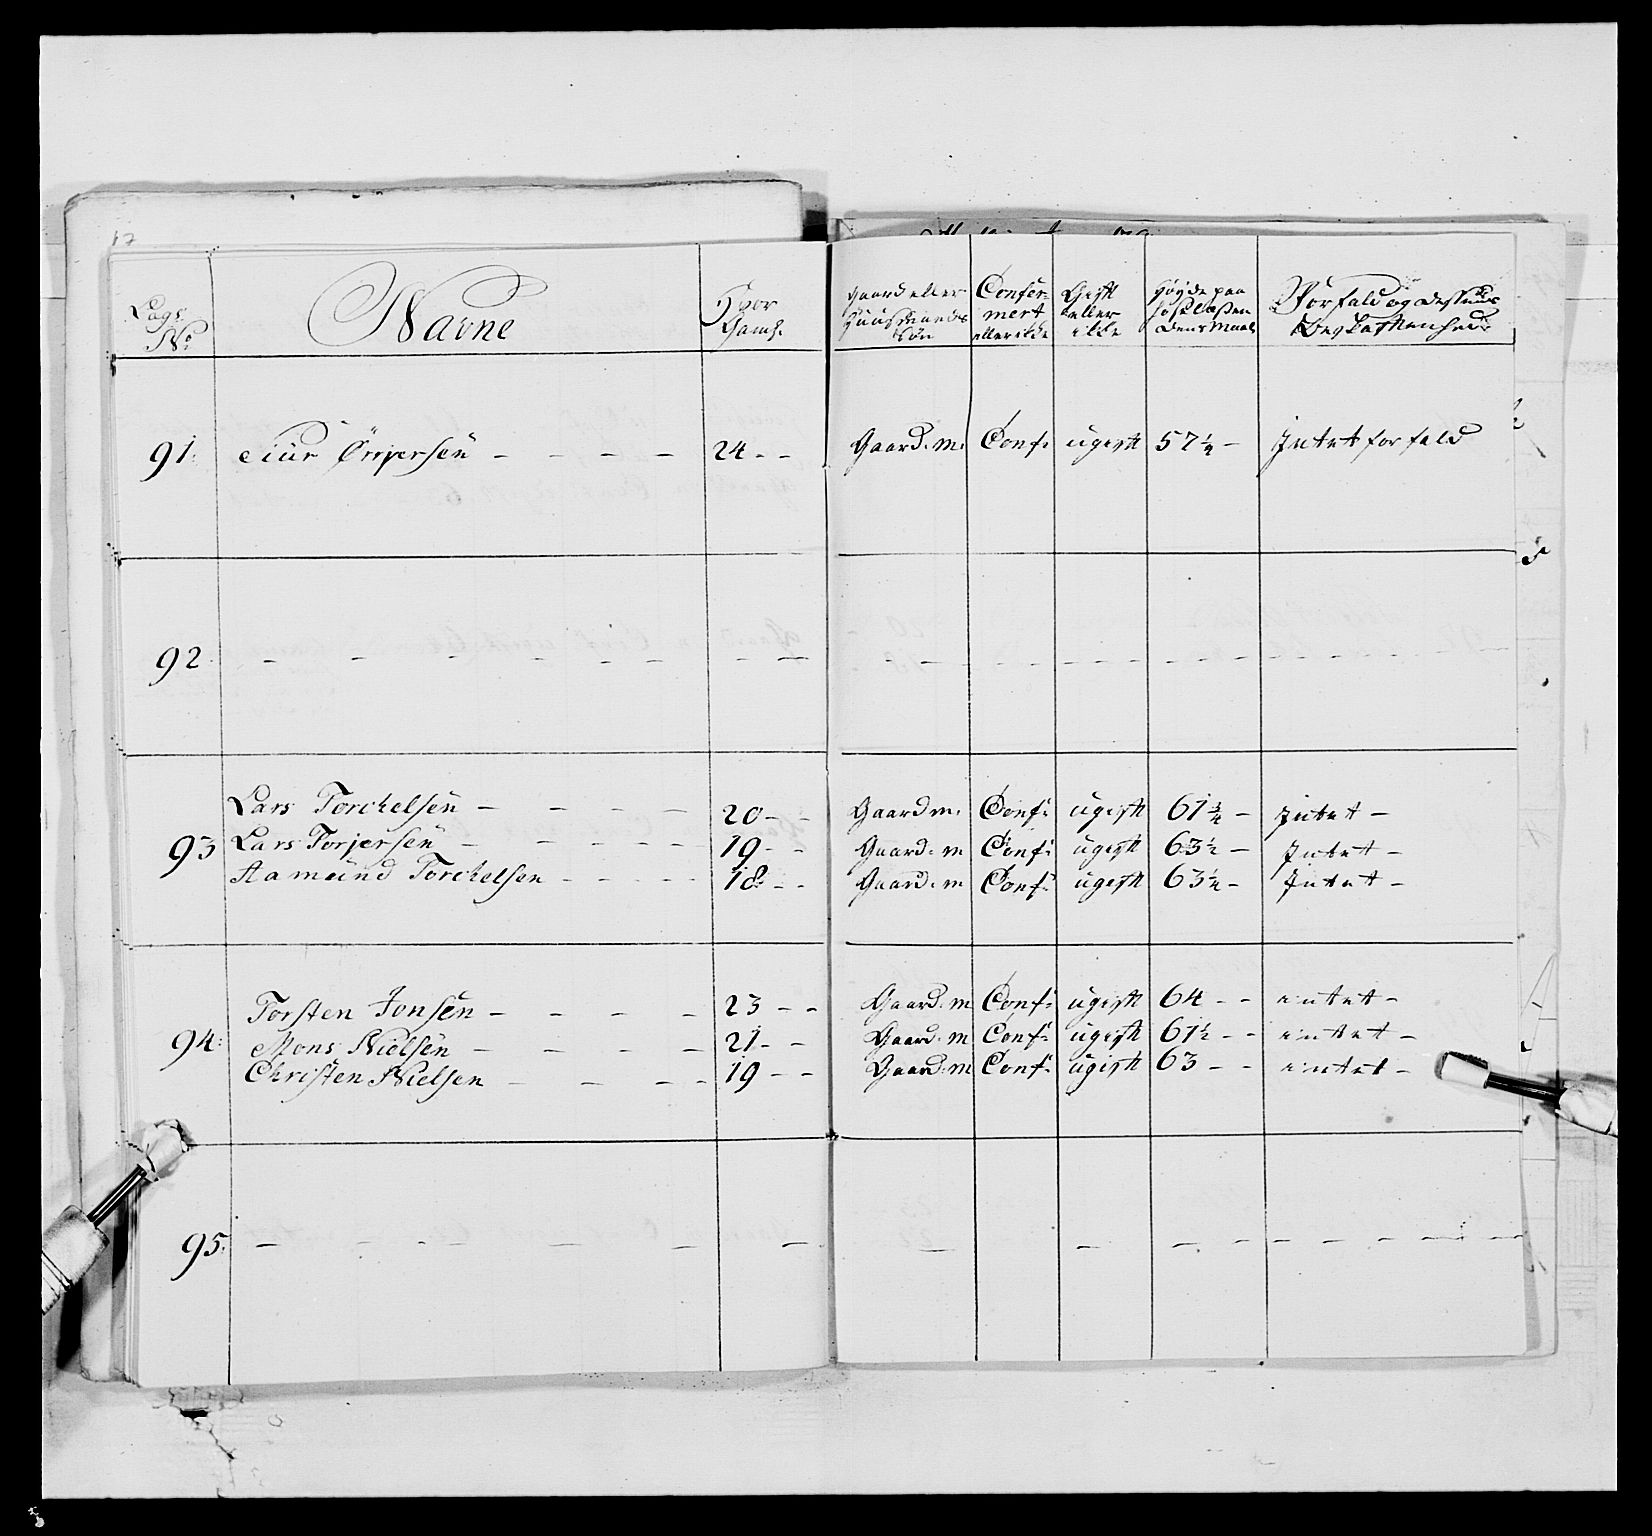 17
Lægs No Navne Hvor Gaml. Gaard eller Huusmands Søn Confermert eller ikke Gift eller ikke Høyde paa Maal Forfald og dessens Beskaffenhed
91: Siur - - - - 24 - - Gaard. m. Conf: ugift 57 1/4 - Intet forfald
92. - - - - - - - -
Lars Torchelsen - - - - 20 - - Gaard m. Conf: ugift 61 3/4 - Intet -
93 Lars Torjersen - - - - - 19 - - Gaard. m Conf: ugift 63 1/2 - Intet -
Aamund Torchelsen - - - - - 18 - - Gaard. m Conf: ugift 63 1/4 - Intet -
Torsten Jonsen - - - - 23 - - Gaard. m Conf: ugift 64 - - intet -
94: Mons Nielsen - - - - 21 - - Gaard. m Conf: ugift 61 1/2 - - intet -
Christen Nielsen - - - - 19 - - Gaard. m Conf: ugift 63 - - intet -
95: - - - - - - - -